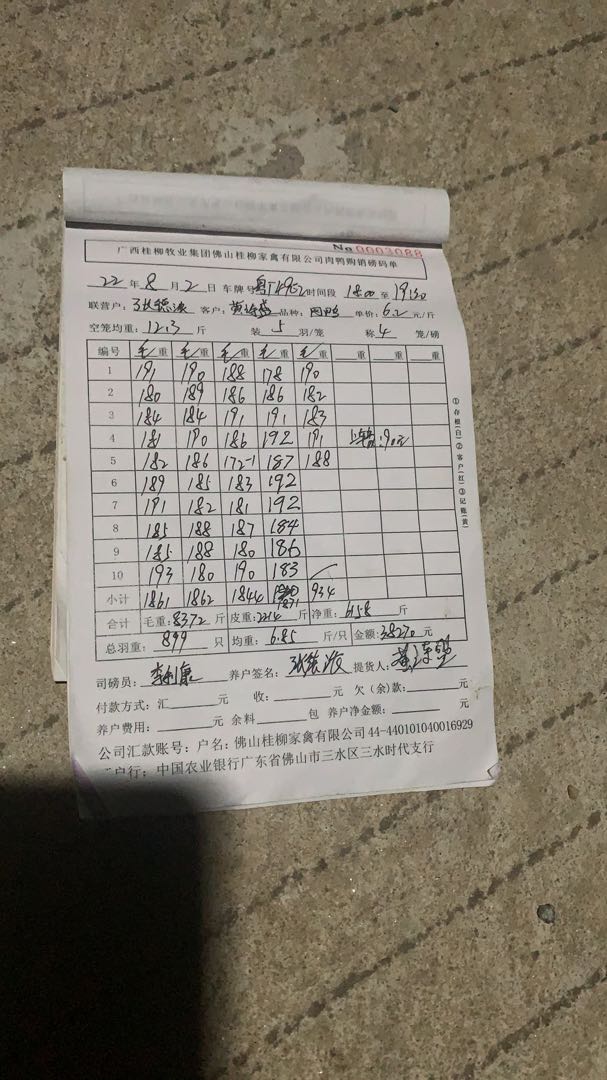 No 0003088
广西桂柳牧业集团佛山桂柳家禽有限公司肉鸭购销磅码单
22年 8 月 2 日 车牌号 时间段 18:00 至 19:30
联营户: 客户: 品种: 肉鸭 单价: 6.2 元/斤
空笼均重: 12.3 斤 装 5 羽/笼 称 4 笼/磅
编号 毛重 毛重 毛重 毛重 毛重 重 重 重
1 191 190 188 178 190
2 180 189 186 186 182
3 184 184 191 191 183
4 181 190 186 192 191 :90元
5 182 186 172-1 187 188
6 189 185 183 192
7 191 182 181 192
8 185 188 187 184
9 185 188 180 186
10 193 180 190 183
小计 1861 1862 1844 1871 934
合计 毛重: 8372 斤 皮重: 2214 斤 净重: 6158 斤
总羽重: 899 只 均重: 6.85 斤/只 金额: 38270 元
①存根(白)②客户(红)③记账(黄)
司磅员: 养户签名: 提货人:
付款方式: 汇 元 收: 元 欠(余)款: 元
养户费用: 元 余料 包 养户净金额: 元
公司汇款账号: 户名: 佛山桂柳家禽有限公司 44-440101040016929
户行: 中国农业银行广东省佛山市三水区三水时代支行